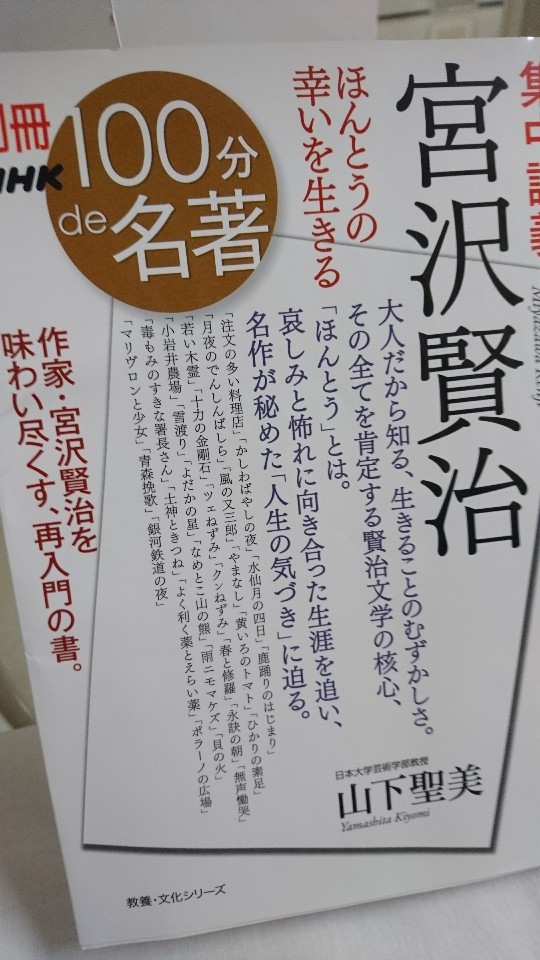 集中講義
宮沢賢治
Miyazawa Kenji
ほんとうの
幸いを生きる
別冊
NHK
100分
de名著
大人だから知る、生きることのむずかしさ。
その全てを肯定する賢治文学の核心、
「ほんとう」とは。
哀しみと怖れに向き合った生涯を追い、
名作が秘めた「人生の気づき」に迫る。
「注文の多い料理店」「かしわばやしの夜」「水仙月の四日」「鹿踊りのはじまり」
「月夜のでんしんばしら」「風の又三郎」「やまなし」「黄いろのトマト」「ひかりの素足」
「若い木霊」「十力の金剛石」「ツェねずみ」「クンねずみ」「春と修羅」「永訣の朝」「無声慟哭」
「小岩井農場」「雪渡り」「よだかの星」「なめとこ山の熊」「雨ニモマケズ」「貝の火」
「毒もみのすきな署長さん」「土神ときつね」「よく利く薬とえらい薬」「ポラーノの広場」
「マリヴロンと少女」「青森挽歌」「銀河鉄道の夜」
作家・宮沢賢治を
味わい尽くす、再入門の書。
日本大学芸術学部教授
山下聖美
Yamashita Kiyomi
教養・文化シリーズ